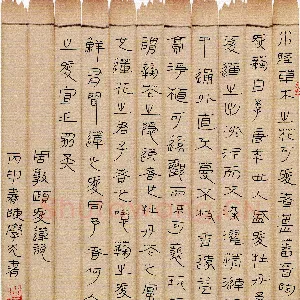 水陸草木之花可愛者甚蕃晉陶
愛菊自李唐來世人盛愛牡丹
愛蓮之出淤泥而不染濯清
中通外直不蔓不枝香遠益
亭淨植可遠觀而不可褻玩
謂菊花之隱逸者也牡丹花之
也蓮花之君子者也噫菊之愛
鮮有聞蓮之愛同予者何人
之愛宜乎眾矣
周敦頤愛蓮說
丙 春陳 書